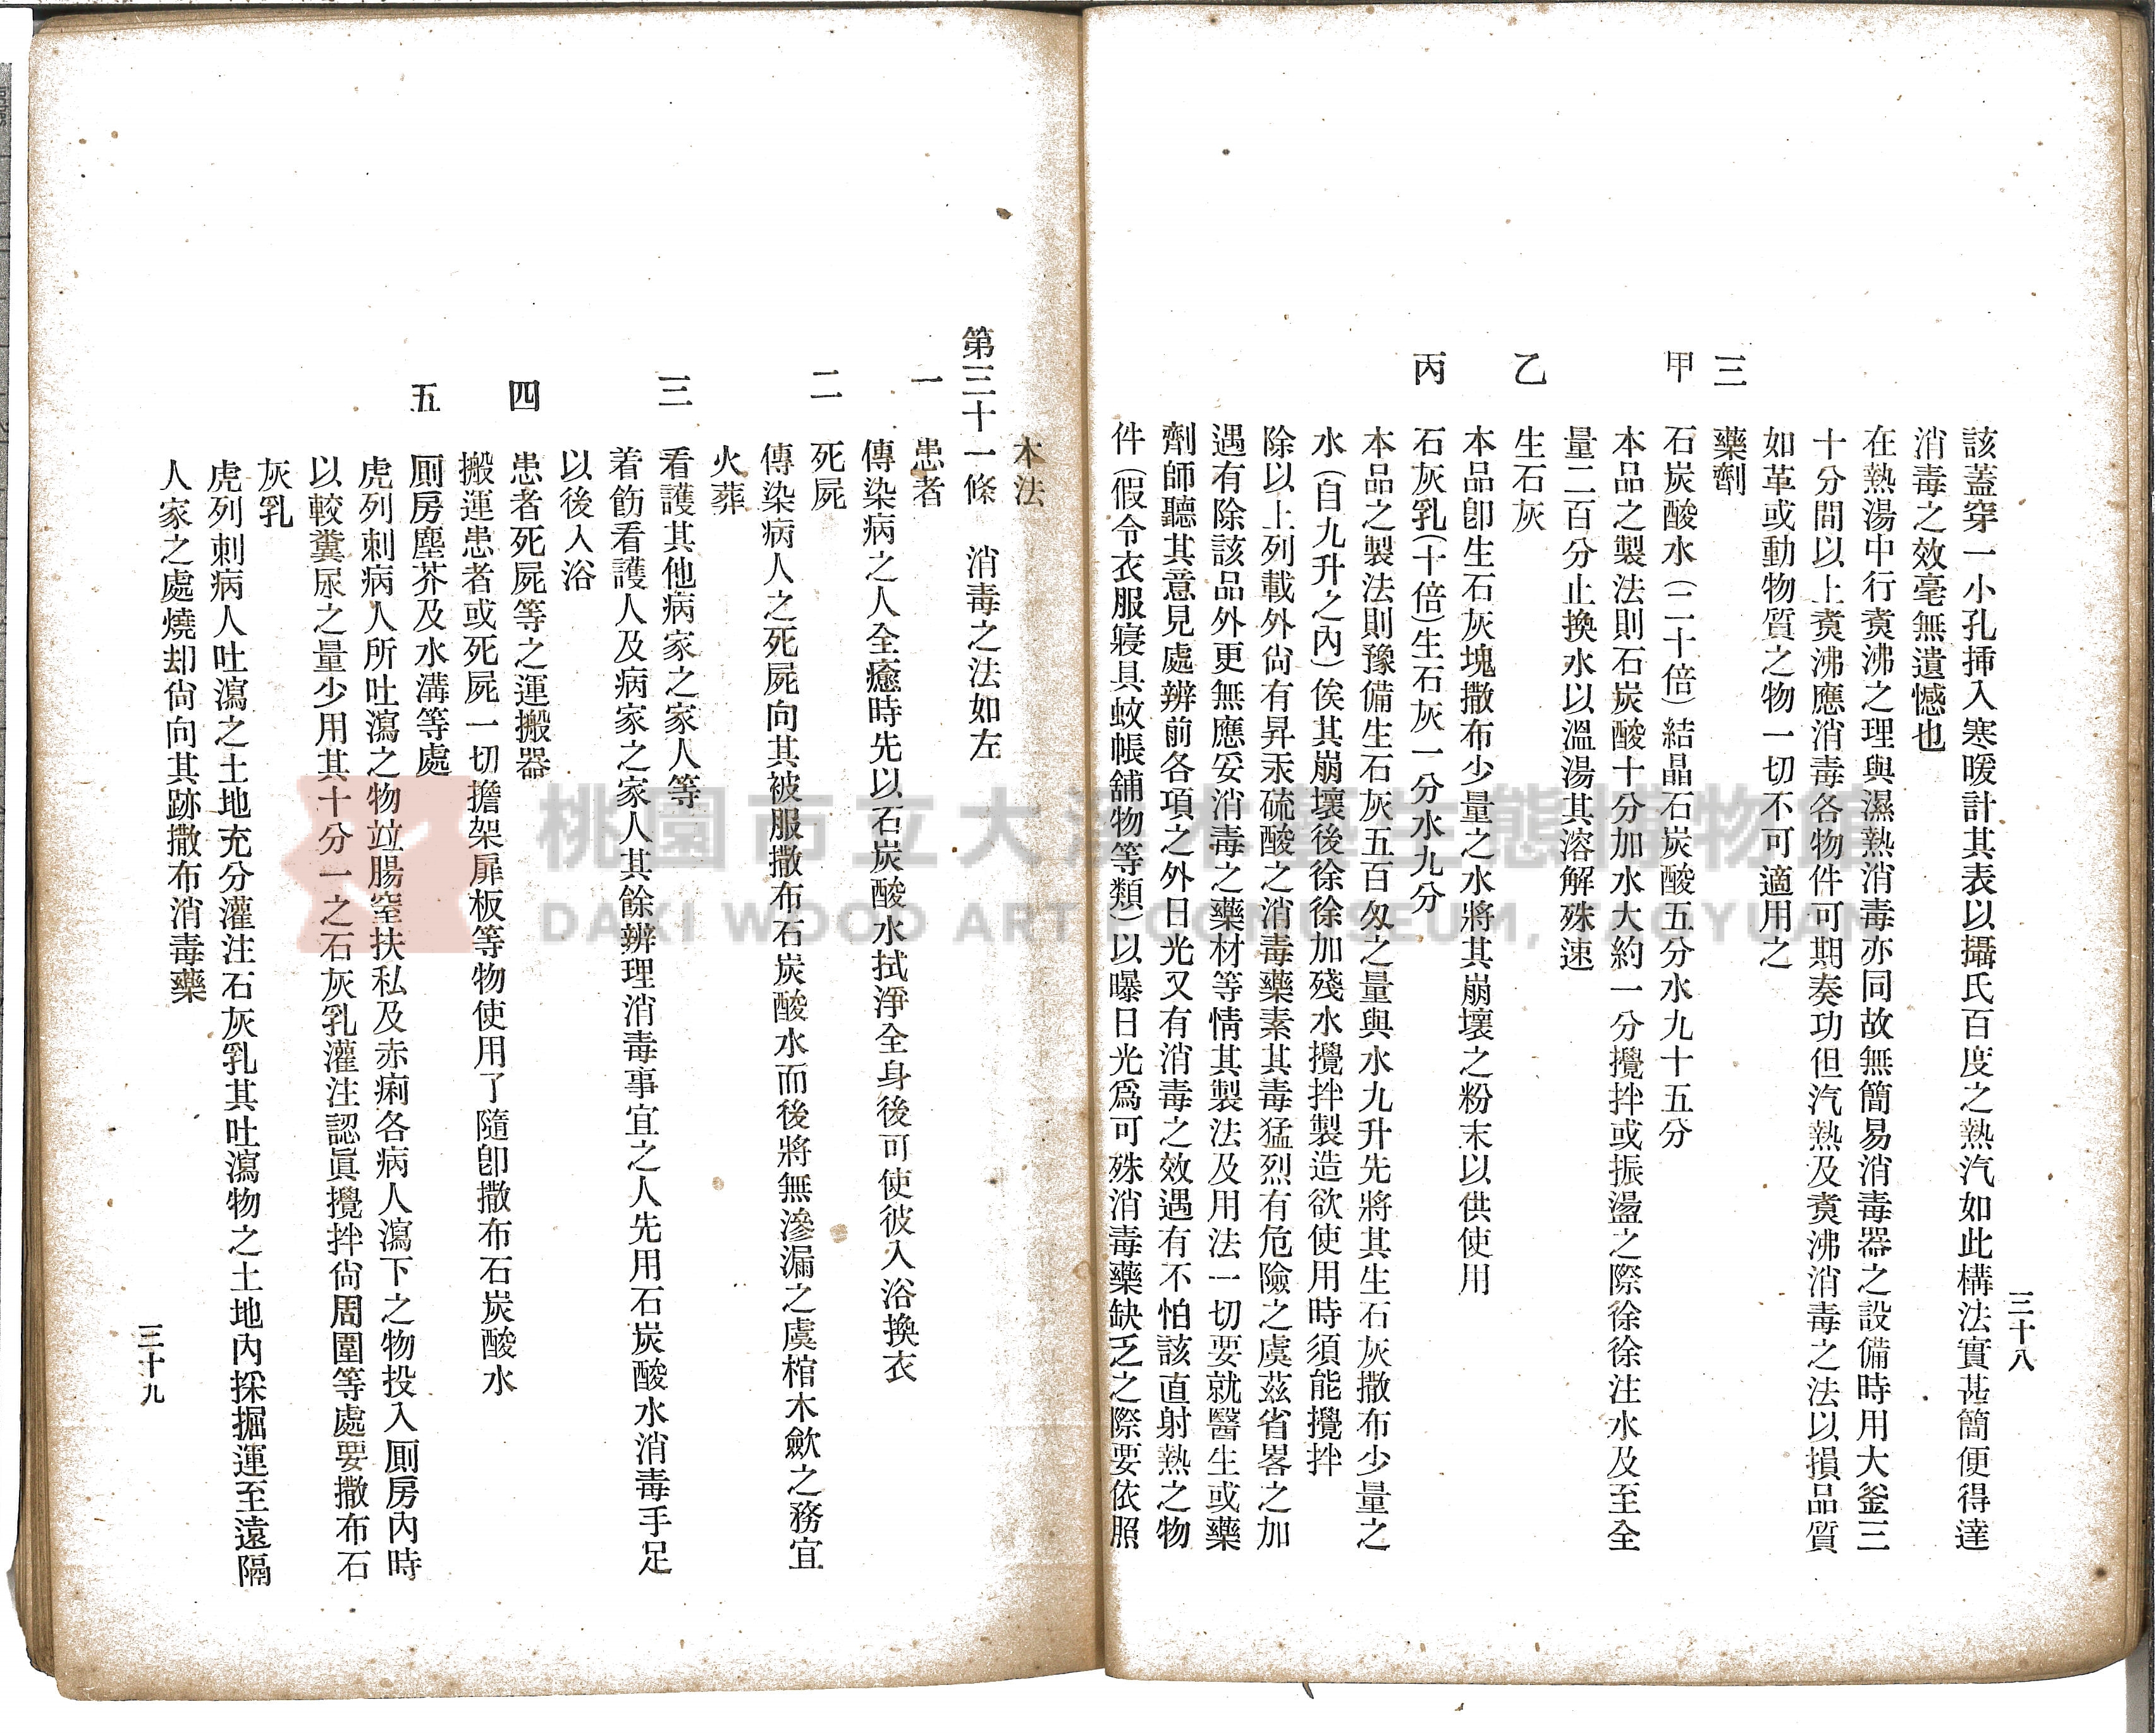 三十八
該蓋穿一小孔揷入寒暖計其表以攝氏百度之熱汽如此構法實甚簡便得達
消毒之效毫無遺憾也
在熱湯中行煑沸之理與濕熱消毒亦同故無簡易消毒器之設備時用大釜三
十分間以上煑沸應消毒各物件可期奏功但汽熱及煑沸消毒之法以損品質
如革或動物質之物一切不可適用之
三 藥劑
甲 石炭酸水(二十倍)結晶石炭酸五分水九十五分
本品之製法則石炭酸十分加水大約一分攪拌或振盪之際徐徐注水及至全
量二百分止換水以溫湯其溶解殊速
乙 生石灰
本品卽生石灰塊撒布少量之水將其崩壞之粉末以供使用
丙 石灰乳(十倍)生石灰一分水九分
本品之製法則豫備生石灰五百匁之量與水九升先將其生石灰撒布少量之
水(自九升之內)俟其崩壞後徐徐加殘水攪拌製造欲使用時須能攪拌
除以上列載外尙有昇汞硫酸之消毒藥素其毒猛烈有危險之虞茲省畧之加
遇有除該品外更無應妥消毒之藥材等情其製法及用法一切要就醫生或藥
劑師聽其意見處辨前各項之外日光又有消毒之效遇有不怕該直射熱之物
件(假令衣服寢具蚊帳舖物等類)以曝日光爲可殊消毒藥缺乏之際要依照
本法
第三十一條 消毒之法如左
一 患者
傳染病之人全癒時先以石炭酸水拭淨全身後可使彼入浴換衣
二 死屍
傳染病人之死屍向其被服撒布石炭酸水而後將無滲漏之虞棺木歛之務宜
火葬
三 看護其他病家之家人等
着飭看護人及病家之家人其餘辨理消毒事宜之人先用石炭酸水消毒手足
以後入浴
四 患者死屍等之運搬器
搬運患者或死屍一切擔架扉板等物使用了隨卽撒布石炭酸水
五 厠房塵芥及水溝等處
虎列刺病人所吐瀉之物竝腸窒扶私及赤痢各病人瀉下之物投入厠房內時
以較糞尿之量少用其十分一之石灰乳灌注認眞攪拌尙周圍等處要撒布石
灰乳
虎列刺病人吐瀉之土地充分灌注石灰乳其吐瀉物之土地內採掘運至遠隔
人家之處燒却尙向其跡撒布消毒藥
三十九
桃園市立大溪木藝生態博物館
DAXI WOOD ART ECOMUSEUM, TAOYUAN